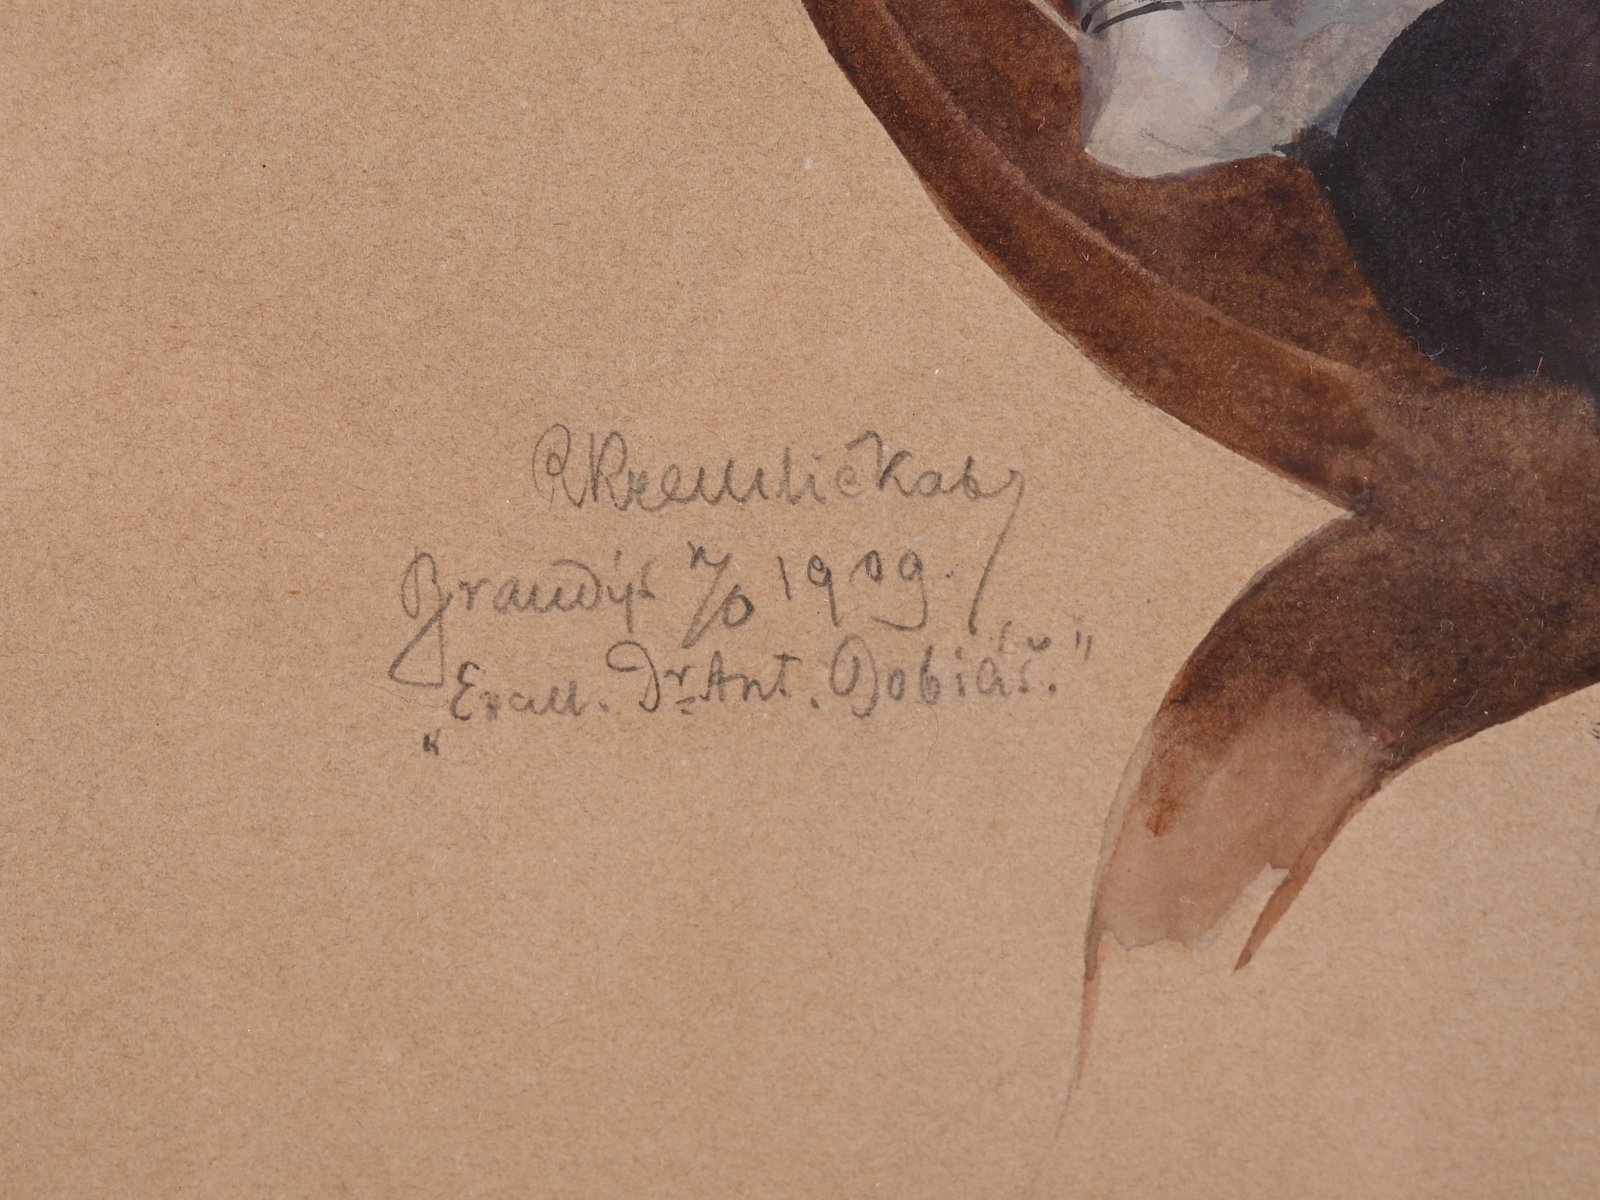 RKremlička
Brandýs n/O 1909.
„Excell. Dr Ant. Dobiáš."